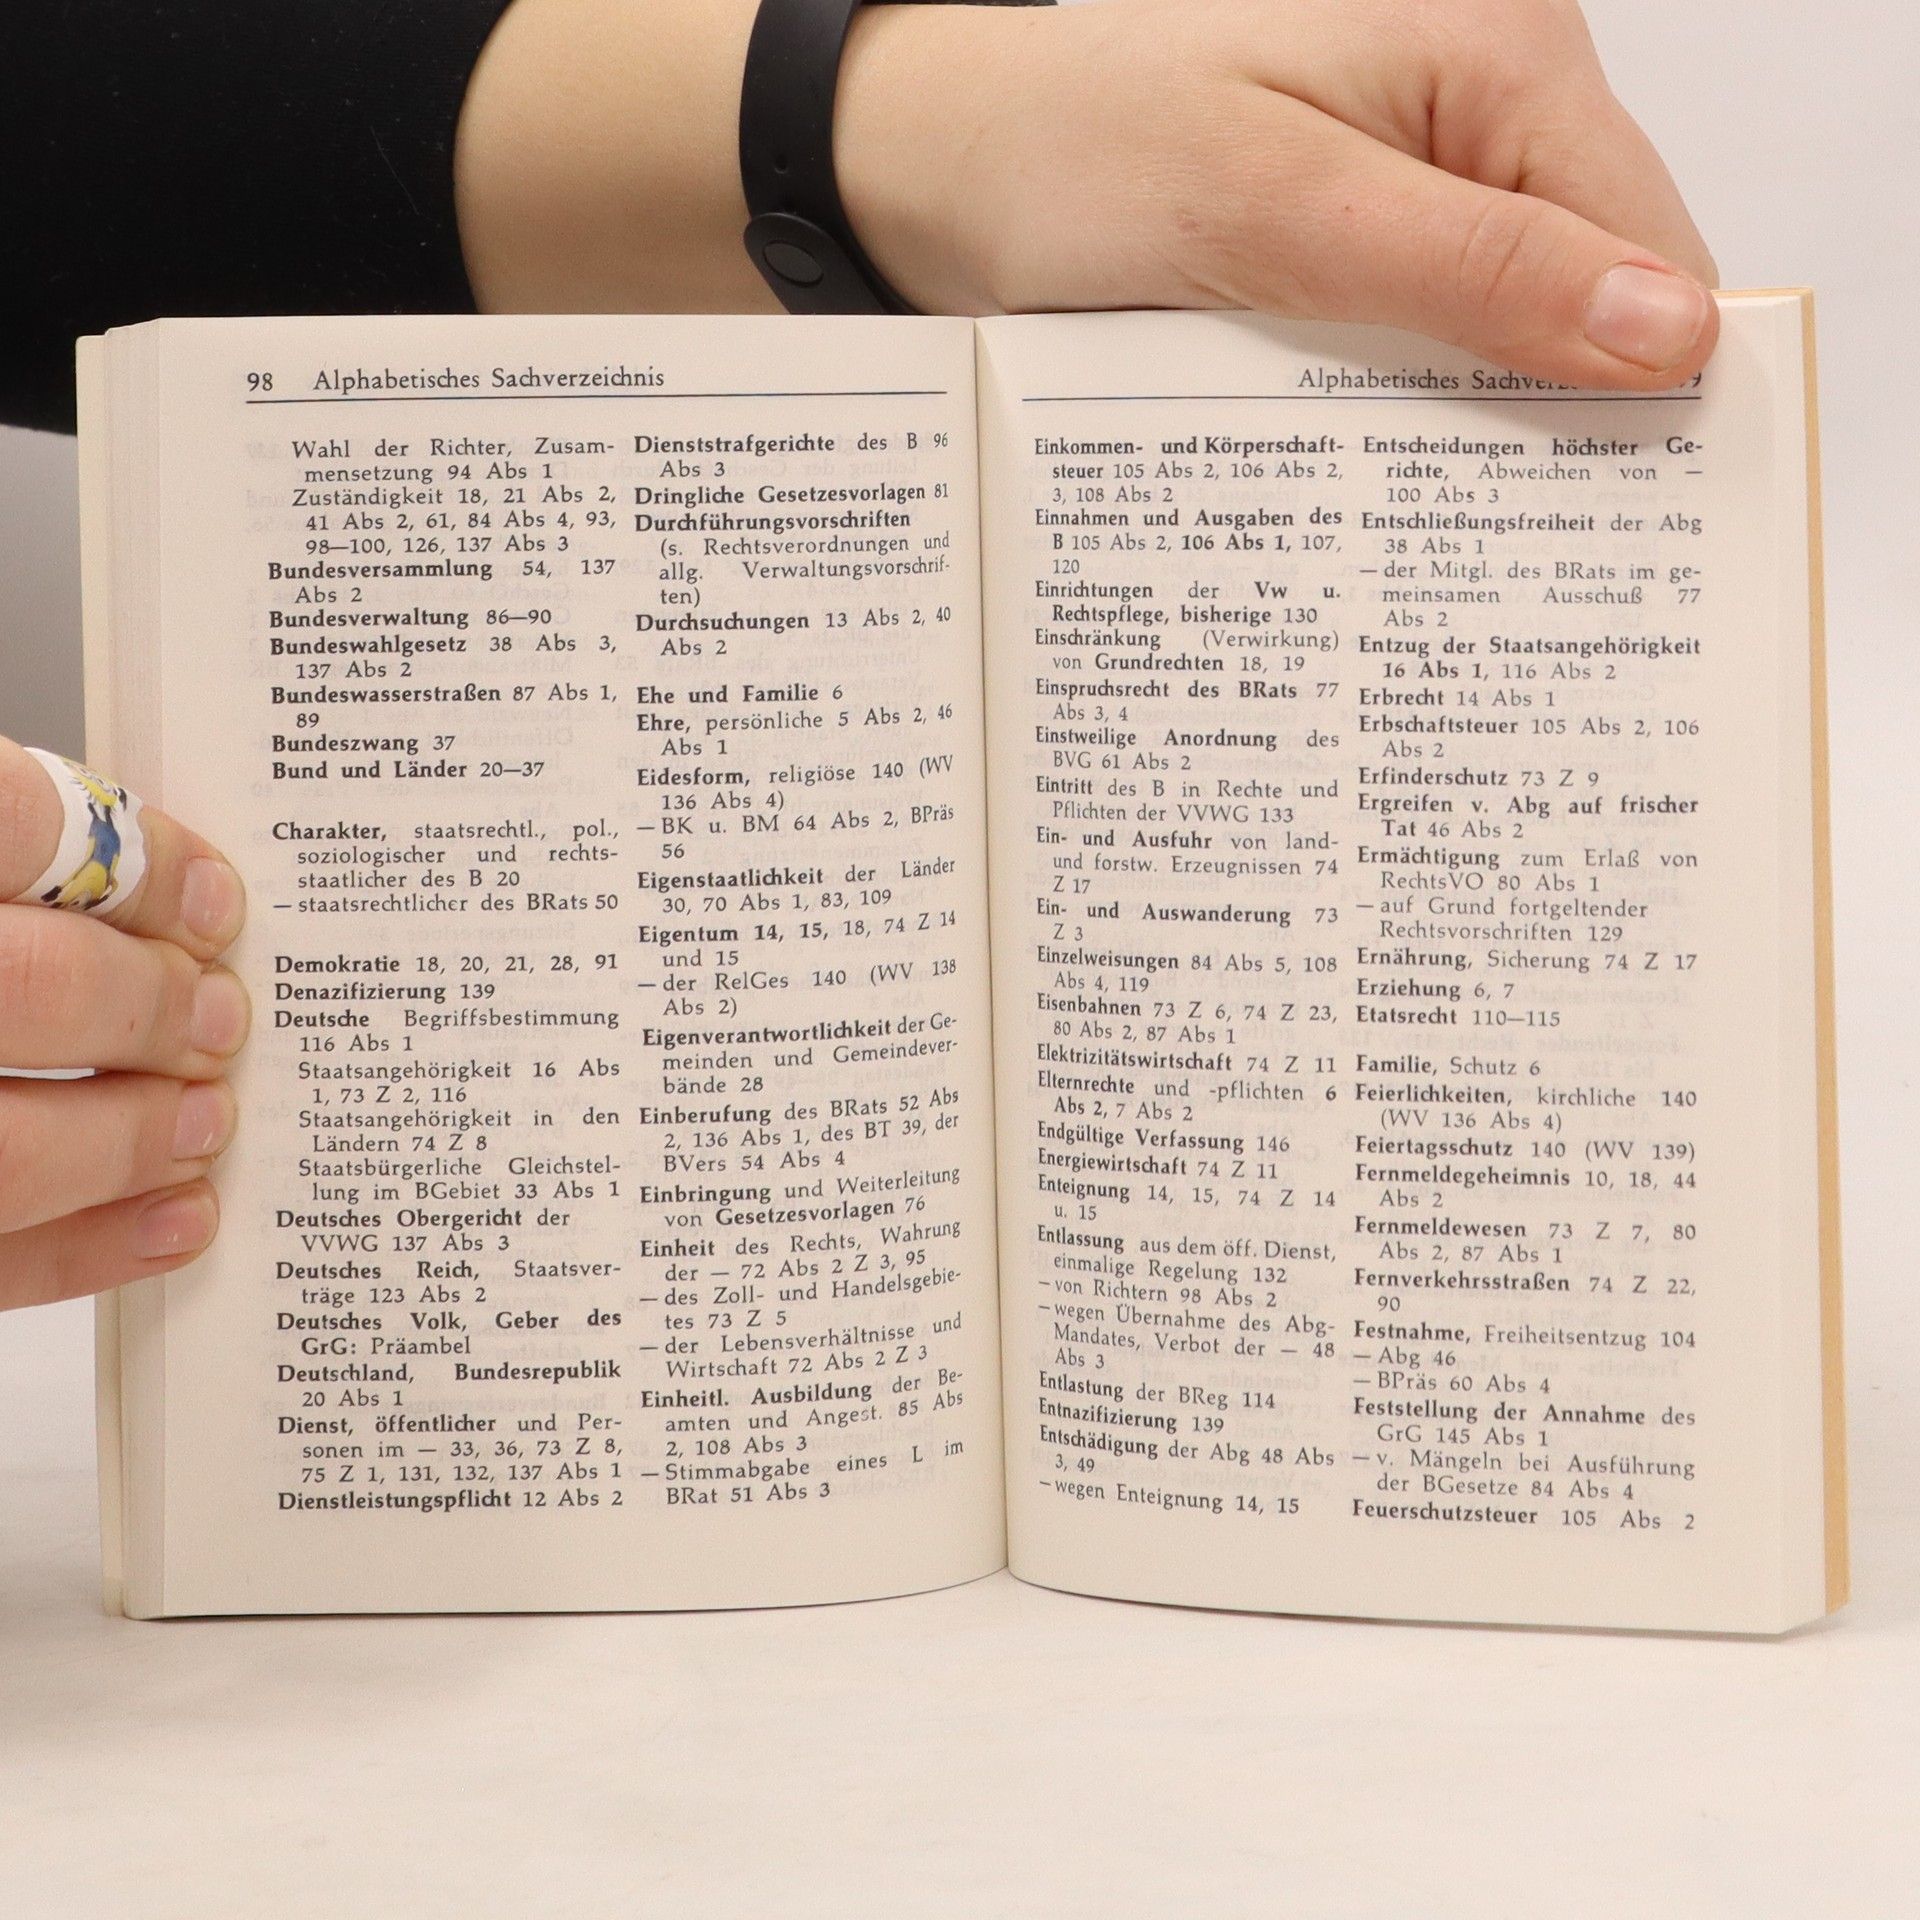 98 Alphabetisches Sachverzeichnis
Wahl der Richter, Zusam-
mensetzung 94 Abs 1
Zuständigkeit 18, 21 Abs 2,
41 Abs 2, 61, 84 Abs 4, 93,
98—100, 126, 137 Abs 3
Bundesversammlung 54, 137
Abs 2
Bundesverwaltung 86—90
Bundeswahlgesetz 38 Abs 3,
137 Abs 2
Bundeswasserstraßen 87 Abs 1,
89
Bundeszwang 37
Bund und Länder 20—37
Charakter, staatsrechtl., pol.,
soziologischer und rechts-
staatlicher des B 20
— staatsrechtlicher des BRats 50
Demokratie 18, 20, 21, 28, 91
Denazifizierung 139
Deutsche Begriffsbestimmung
116 Abs 1
Staatsangehörigkeit 16 Abs
1, 73 Z 2, 116
Staatsangehörigkeit in den
Ländern 74 Z 8
Staatsbürgerliche Gleichstel-
lung im BGebiet 33 Abs 1
Deutsches Obergericht der
VVWG 137 Abs 3
Deutsches Reich, Staatsver-
träge 123 Abs 2
Deutsches Volk, Geber des
GrG: Präambel
Deutschland, Bundesrepublik
20 Abs 1
Dienst, öffentlicher und Per-
sonen im — 33, 36, 73 Z 8,
75 Z 1, 131, 132, 137 Abs 1
Dienstleistungspflicht 12 Abs 2
Dienststrafgerichte des B 96
Abs 3
Dringliche Gesetzesvorlagen 81
Durchführungsvorschriften
(s. Rechtsverordnungen und
allg. Verwaltungsvorschrif-
ten)
Durchsuchungen 13 Abs 2, 40
Abs 2
Ehe und Familie 6
Ehre, persönliche 5 Abs 2, 46
Abs 1
Eidesform, religiöse 140 (WV
136 Abs 4)
— BK u. BM 64 Abs 2, BPräs
56
Eigenstaatlichkeit der Länder
30, 70 Abs 1, 83, 109
Eigentum 14, 15, 18, 74 Z 14
und 15
— der RelGes 140 (WV 138
Abs 2)
Eigenverantwortlichkeit der Ge-
meinden und Gemeindever-
bände 28
Einberufung des BRats 52 Abs
2, 136 Abs 1, des BT 39, der
BVers 54 Abs 4
Einbringung und Weiterleitung
von Gesetzesvorlagen 76
Einheit des Rechts, Wahrung
der — 72 Abs 2 Z 3, 95
— des Zoll- und Handelsgebie-
tes 73 Z 5
— der Lebensverhältnisse und
Wirtschaft 72 Abs 2 Z 3
Einheitl. Ausbildung der Be-
amten und Angest. 85 Abs
2, 108 Abs 3
— Stimmabgabe eines L im
BRat 51 Abs 3
Alphabetisches
Einkommen- und Körperschaft-
steuer 105 Abs 2, 106 Abs 2,
3, 108 Abs 2
Einnahmen und Ausgaben des
B 105 Abs 2, 106 Abs 1, 107,
120
Einrichtungen der Vw u.
Rechtspflege, bisherige 130
Einschränkung (Verwirkung)
von Grundrechten 18, 19
Einspruchsrecht des BRats 77
Abs 3, 4
Einstweilige Anordnung des
BVG 61 Abs 2
Eintritt des B in Rechte und
Pflichten der VVWG 133
Ein- und Ausfuhr von land-
und forstw. Erzeugnissen 74
Z 17
Ein- und Auswanderung 73
Z 3
Einzelweisungen 84 Abs 5, 108
Abs 4, 119
Eisenbahnen 73 Z 6, 74 Z 23,
80 Abs 2, 87 Abs 1
Elektrizitätswirtschaft 74 Z 11
Elternrechte und -pflichten 6
Abs 2, 7 Abs 2
Endgültige Verfassung 146
Energiewirtschaft 74 Z 11
Enteignung 14, 15, 74 Z 14
u. 15
Entlassung aus dem öff. Dienst,
einmalige Regelung 132
— von Richtern 98 Abs 2
— wegen Übernahme des Abg-
Mandates, Verbot der — 48
Abs 3
Entlastung der BReg 114
Entnazifizierung 139
Entschädigung der Abg 48 Abs
3, 49
— wegen Enteignung 14, 15
Entscheidungen höchster Ge-
richte, Abweichen von —
100 Abs 3
Entschließungsfreiheit der Abg
38 Abs 1
— der Mitgl. des BRats im ge-
meinsamen Ausschuß 77
Abs 2
Entzug der Staatsangehörigkeit
16 Abs 1, 116 Abs 2
Erbrecht 14 Abs 1
Erbschaftsteuer 105 Abs 2, 106
Abs 2
Erfinderschutz 73 Z 9
Ergreifen v. Abg auf frischer
Tat 46 Abs 2
Ermächtigung zum Erlaß von
RechtsVO 80 Abs 1
— auf Grund fortgeltender
Rechtsvorschriften 129
Ernährung, Sicherung 74 Z 17
Erziehung 6, 7
Etatsrecht 110—115
Familie, Schutz 6
Feierlichkeiten, kirchliche 140
(WV 136 Abs 4)
Feiertagsschutz 140 (WV 139)
Fernmeldegeheimnis 10, 18, 44
Abs 2
Fernmeldewesen 73 Z 7, 80
Abs 2, 87 Abs 1
Fernverkehrsstraßen 74 Z 22,
90
Festnahme, Freiheitsentzug 104
— Abg 46
— BPräs 60 Abs 4
Feststellung der Annahme des
GrG 145 Abs 1
— v. Mängeln bei Ausführung
der BGesetze 84 Abs 4
Feuerschutzsteuer 105 Abs 2